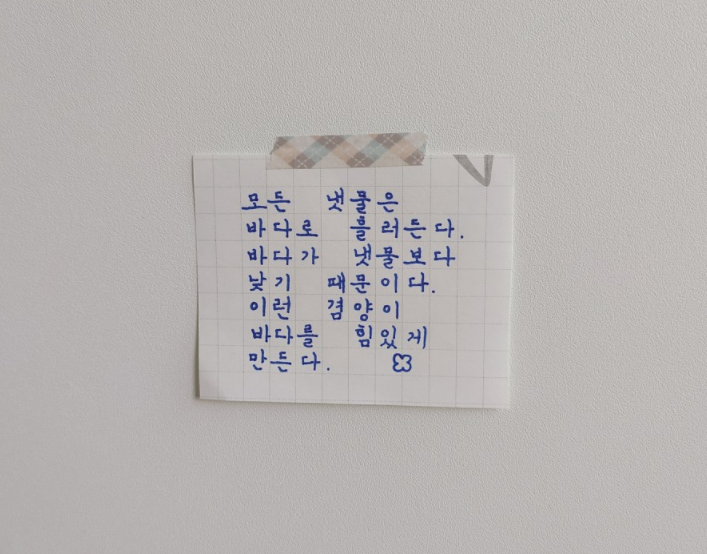 모든 냇물은
바다로 흘러든다.
바다가 냇물보다
낮기 때문이다.
이런 겸양이
바다를 힘있게
만든다.